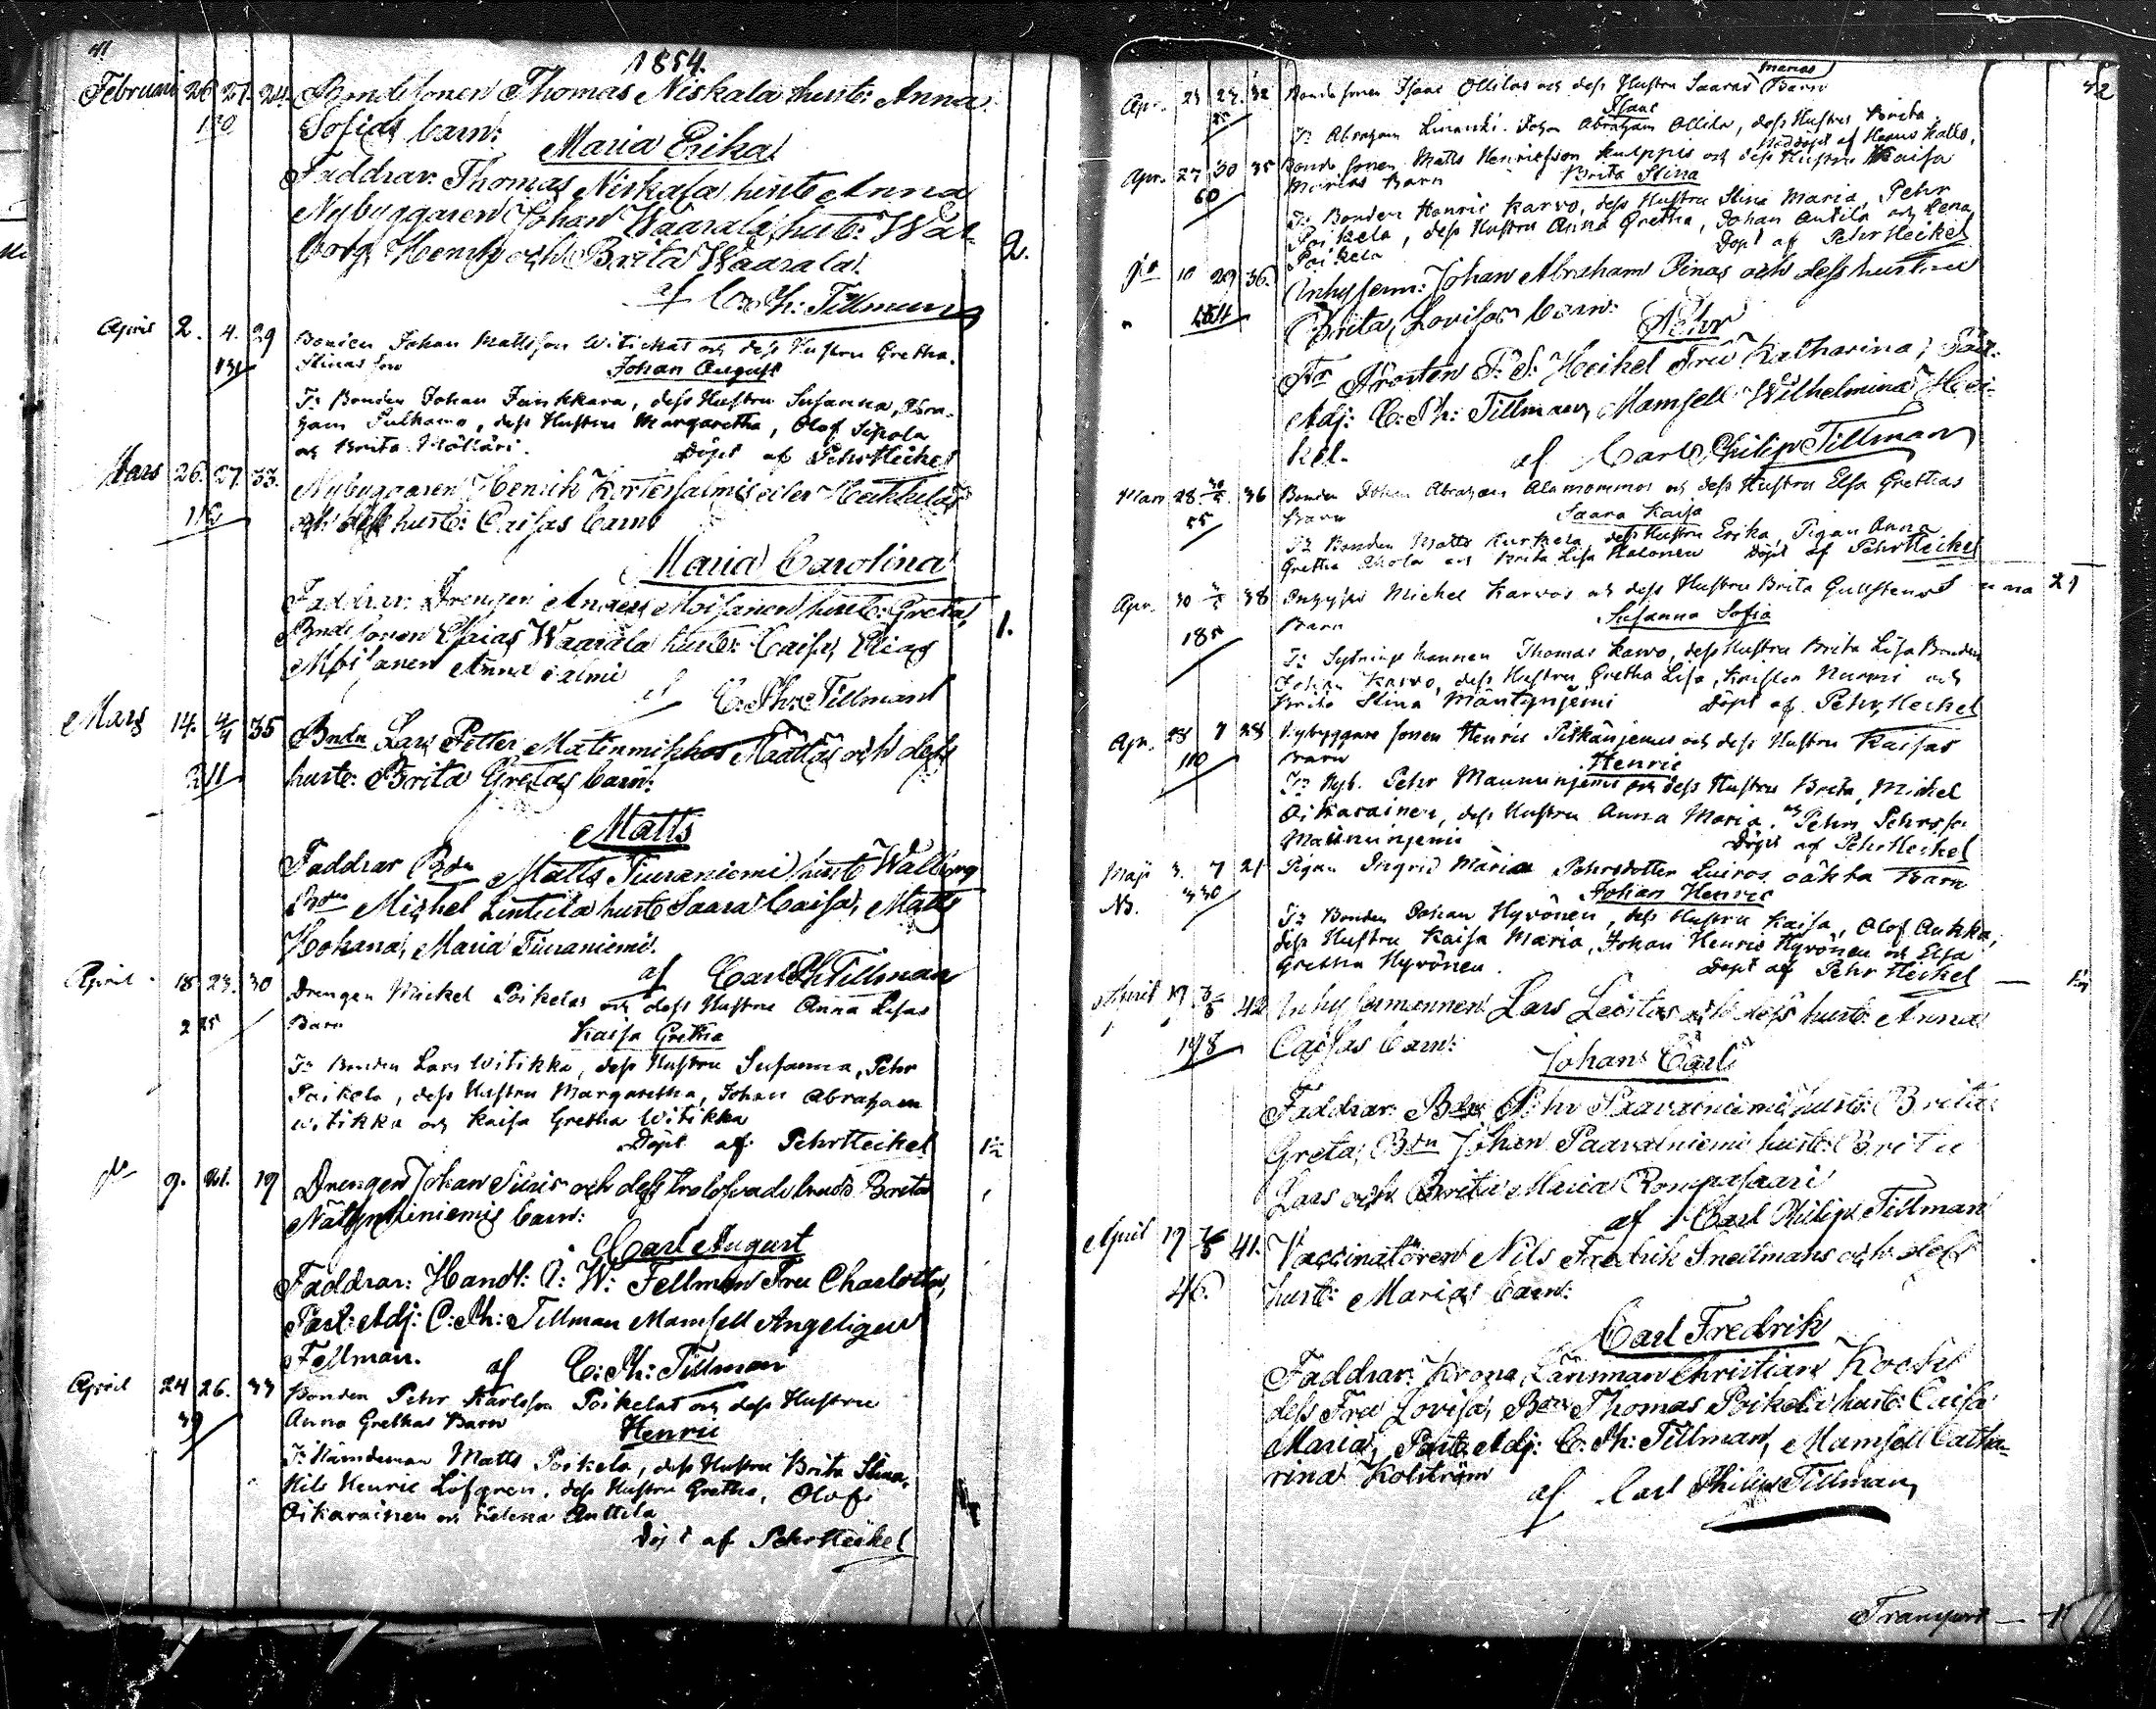 41
1854.
Februari 26 27. 24. Bondesonen Thomas Niskala hust: Anna
130 Sofias barn:
Maria Erika
Faddrar: Thomas Niskala hust: Anna
Nybyggaren Johan Waarala, hust: Wal-
borg, Henrik och Brita Waarala. 2.
af C: Ph: Tillman
April 2. 4. 29 Bonden Johan Mattsson Witickas och dess Hustru Gretha
131 Stinas son Johan August
Fr Bonden Johan Junkkara, dess Hustru Susanna,
Pulkamo, dess Hustru Margaretha, Olof Sipola
och Brita Mölläri. Döpt af Pehr Heikel
Mars 26. 27. 33. Nybyggaren Henrik Kortesalmis eller Heikkilas
116 och dess hust: Caisas barn
Maria Carolina
Faddrar: Drengen Anders Moisanen hust: Greta,
Bondesonen Esaias Waarala hust: Caisa, Elias 1.
Moisanen Anna
af C: Ph: Tillman
Mars 14. 4/4 35 Bndn Lars Petter Matinmikkos Määttäs och dess
211 hust: Brita Gretas barn:
Matts
Faddrar Bdn Matts Tiuraniemi hust: Walborg
Bdn Michel Lintula hust Saara Caisa, Matts
Hokana, Maria Tiuraniemi.
af Carl Ph Tillman
April 18 23. 30 Drengen Mickel Poikelas och dess Hustru Anna Lisas
225 Barn Kaisa Gretha
Fr Bonden Lars Witikka, dess Hustru Susanna, Pehr
Poikela, dess Hustru Margaretha, Johan Abraham
Witikka och Kaisa Gretha Witikka
Döpt af Pehr Heikel
do 9. 21. 19 Drengen Johan Siiris och dess trolofvade brud Brita
Nätynkiniemis barn:
Carl August
Faddrar: Handl: C: W: Fellman Fru Charlotta,
Past: Adj: C: Ph: Tillman Mamsell Angelique
Fellman. af C: Ph: Tillman
April 24 26. 33 Bonden Pehr Karlsson Poikelas och dess Hustru
39 Anna Grethas Barn Henric
Fr Nämdeman Matts Poikela, dess Hustru Brita Stina,
Nils Henric Löfgren, dess Hustru Gretha, Olof
Oikarainen och Helena Anttila
Döpt af Pehr Heikel
42
Apr. 23 23. 32 Bonde sonen Isaac Ollilas och dess Hustru Saaras Marias Barn
Isaac
Fr Abraham Johan Abraham Ollila, dess Hustru Brita
Nöddöpt af Hans Kallo.
Apr. 27 30 35 Bonde sonen Matts Henricsson Kulppis och dess Hustru Kaisa
60 Marias Barn Brita Stina
Fr Bonden Henric Karvo, dess Hustru Stina Maria, Pehr
Poikela, dess Hustru Anna Gretha, Johan Antila och Lena
Poikela Döpt af Pehr Heikel
do 10 29 36. Inhysesm: Johan Abraham Pinas och dess hustru
Brita Lovisas barn: Pehr
Fr Prosten P: J: Heikel Fru Katharina, Past:
Adj: C: Ph: Tillman, Mamsell Wilhelmina Hei-
kel. af Carl Philip Tillman
Mars 28 36 Bonden Johan Abraham Alamommos och dess Hustru Elsa Grethas
55 Barn Saara Kaisa
Fr Bonden Matts Kurkela, dess Hustru Erika, Pigan Anna
Gretha och Brita Lisa Halonen Döpt af Pehr Heikel
Apr. 30 38 Inhyses Michel Karvos och dess Hustru Brita Gullstens 21
185 Barn Susanna Sofia
Fr Sytningsmannen Thomas Karvo, dess Hustru Brita Lisa Bonden
Johan Karvo, dess Hustru Gretha Lisa, Krister Nurmi och
Brita Stina Mäntyniemi Döpt af Pehr Heikel
Apr. 28 7 28 Nybyggare sonen Henric Pitkäniemis och dess Hustru Kaisas
110 Barn Henric
Fr Nyb. Pehr Maununiemi och dess Hustru Brita, Michel
Oikarainen, dess Hustru Anna Maria och Pehr Pehrsson
Maununiemi Döpt af Pehr Heikel
Maji 3. 7 21 Pigan Ingrid Maria Pehrsdotter Luiros oäkta Barn
No. 330 Johan Henric
Fr Bonden Johan Hyvönen, dess Hustru Kaisa, Olof Aukka,
dess Hustru Kaisa Maria, Johan Henric Hyvönen och Elsa
Gretha Hyvönen. Döpt af Pehr Heikel
April 17 42 Inhysesmannen Lars Leistas och dess hust: Anna
148 Caisas barn: Johan Carl
Faddrar: Bdn Pehr Paavalniemi hust: Brita
Greta, Bdn Johan Paavalniemi hust: Brita
Lars och Brita Maria Rompasaari
af Carl Philip Tillman
April 17 41. Vaccinatören Nils Fredrik Snellmans och dess
46. hust: Marias barn:
Carl Fredrik
Faddrar: Krono Länsman Christian Kocht
dess Fru Lovisa, Bdn Thomas Poikela hust: Caisa
Maria, Past: Adj: C: Ph: Tillman, Mamsell Catha-
rina Kolström
af Carl Philip Tillman
Transport — 11